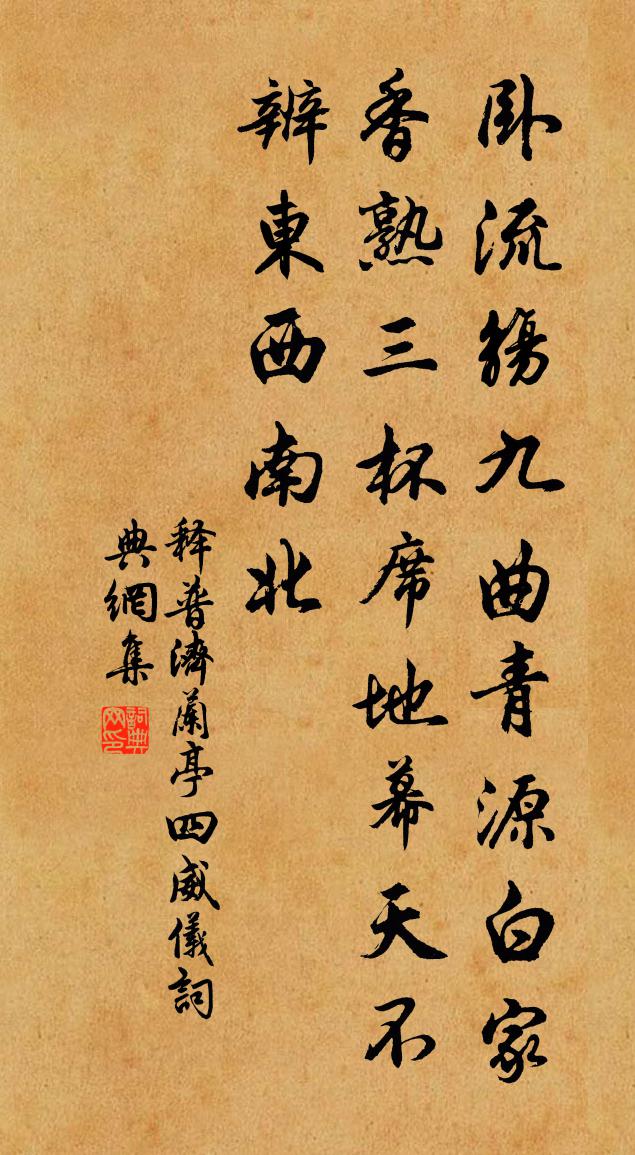 卧流觴九曲青源白家
香熟三杯席地幕天不
辨東西南北
释普濟蘭亭四威儀詞
典網集
詞典
网印